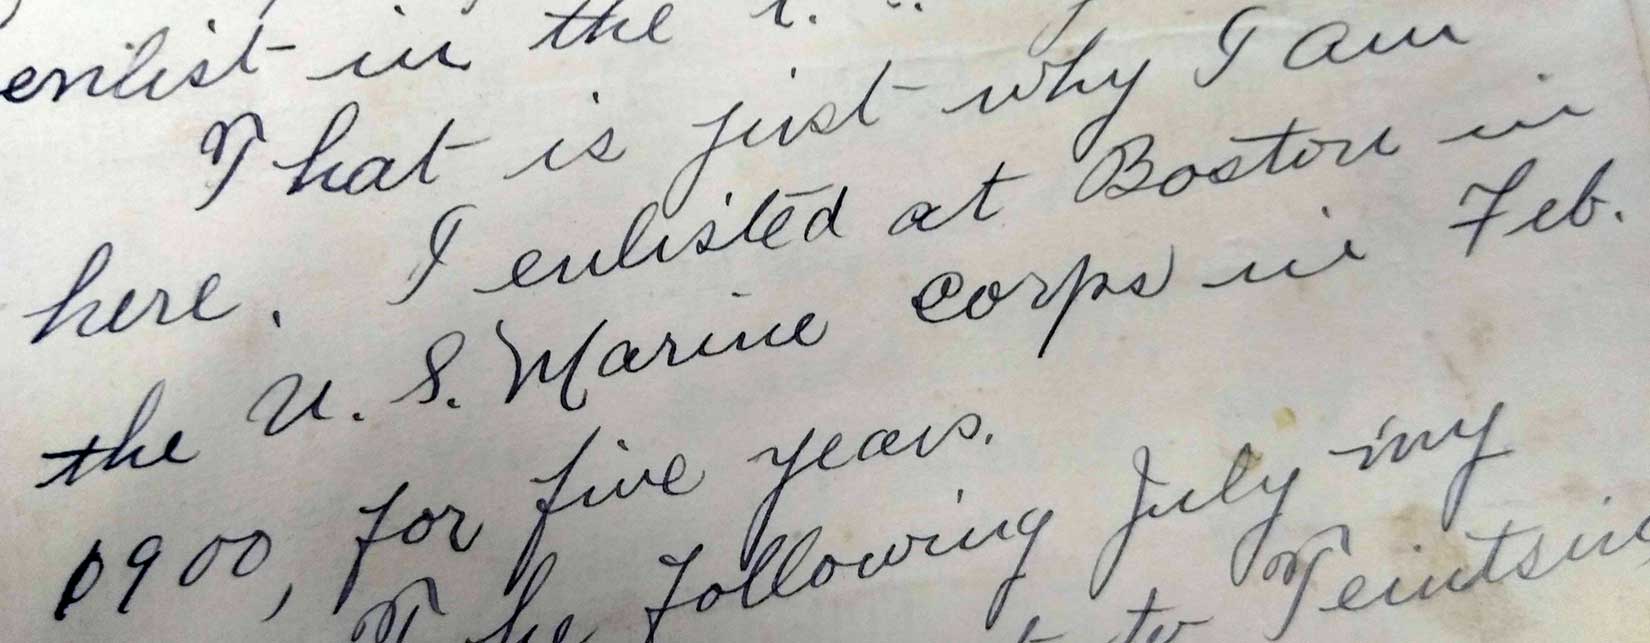 enlist in the
That is just why I am
here. I enlisted at Boston in
the U. S. Marine Corps in Feb.
1900, for five years.
The following July my
to Teintsin